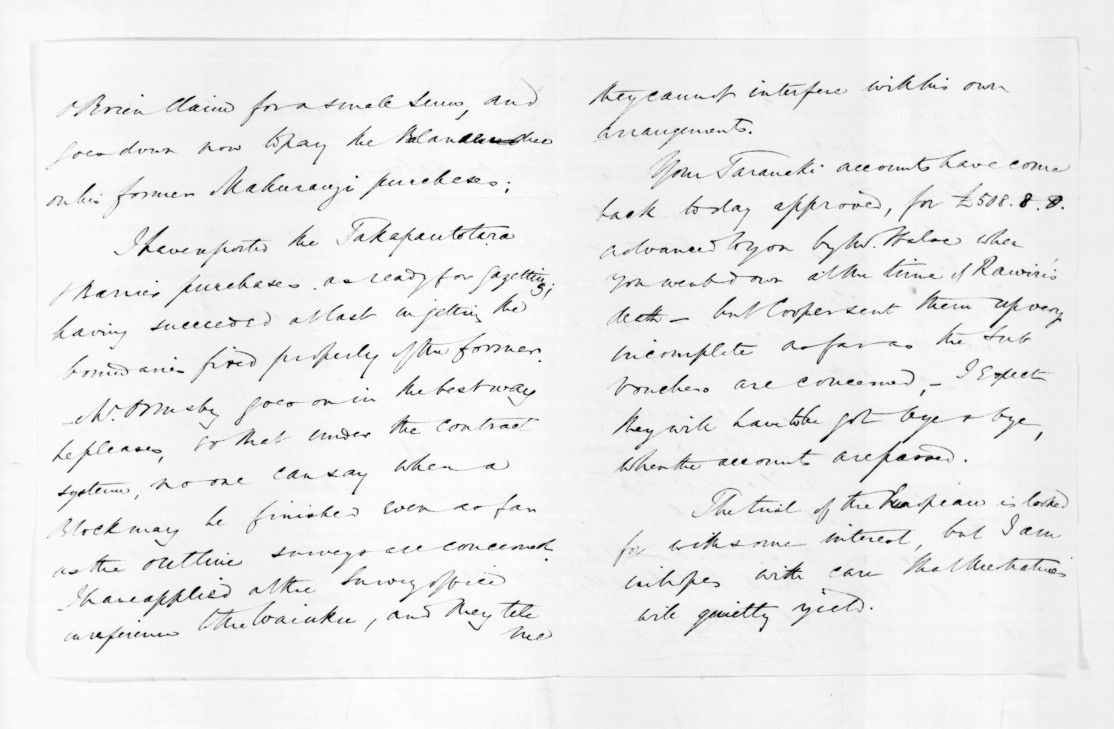 O'Brien Claim for a small sum, and
goes down now to pay the Balance due
on his former Mahurangi purchases;
I have reported the Takapautotara
& Barrier purchases as ready for gazetting;
having succeeded at last in getting the
boundaries fixed properly of the former.
- Mr. Ormsby goes on in the best way
he pleases, so that under the contract
system, no one can say when a
Block may be finished even as far
as the outline surveys are concerned.
I have applied at the Survey office
in reference to the Waiuku, and they tell
me
they cannot interfere with his own
arrangements.
Your Taranaki accounts have come
back today approved, for £508.8.8.
advanced to you by Mr. Halse when
you went down at the time of Rawiri's
death - but Cooper sent them up very
incomplete as far as the Sub
Vouchers are concerned, - I Expect
they will have to be got bye & bye,
when the accounts are passed.
The trial of the European is looked
for with some interest, but I am
in hopes with care that the natives
will quietly yield.